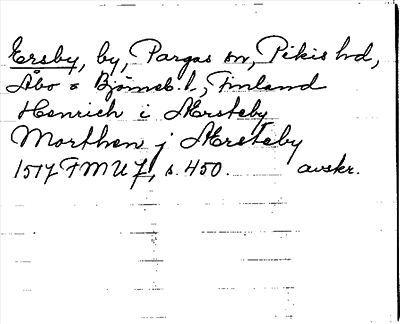 Ersby, by, Pargas sn, Pikis hd,
Åbo o Björneb. l., Finland
Henrich i Ærsteby
Morthen j Ærsteby
1517 FMU 7, s. 450. avskr.